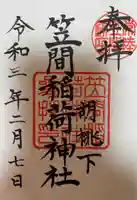 奉拝
胡桃下
笠間稲荷神社
令和三年二月七日